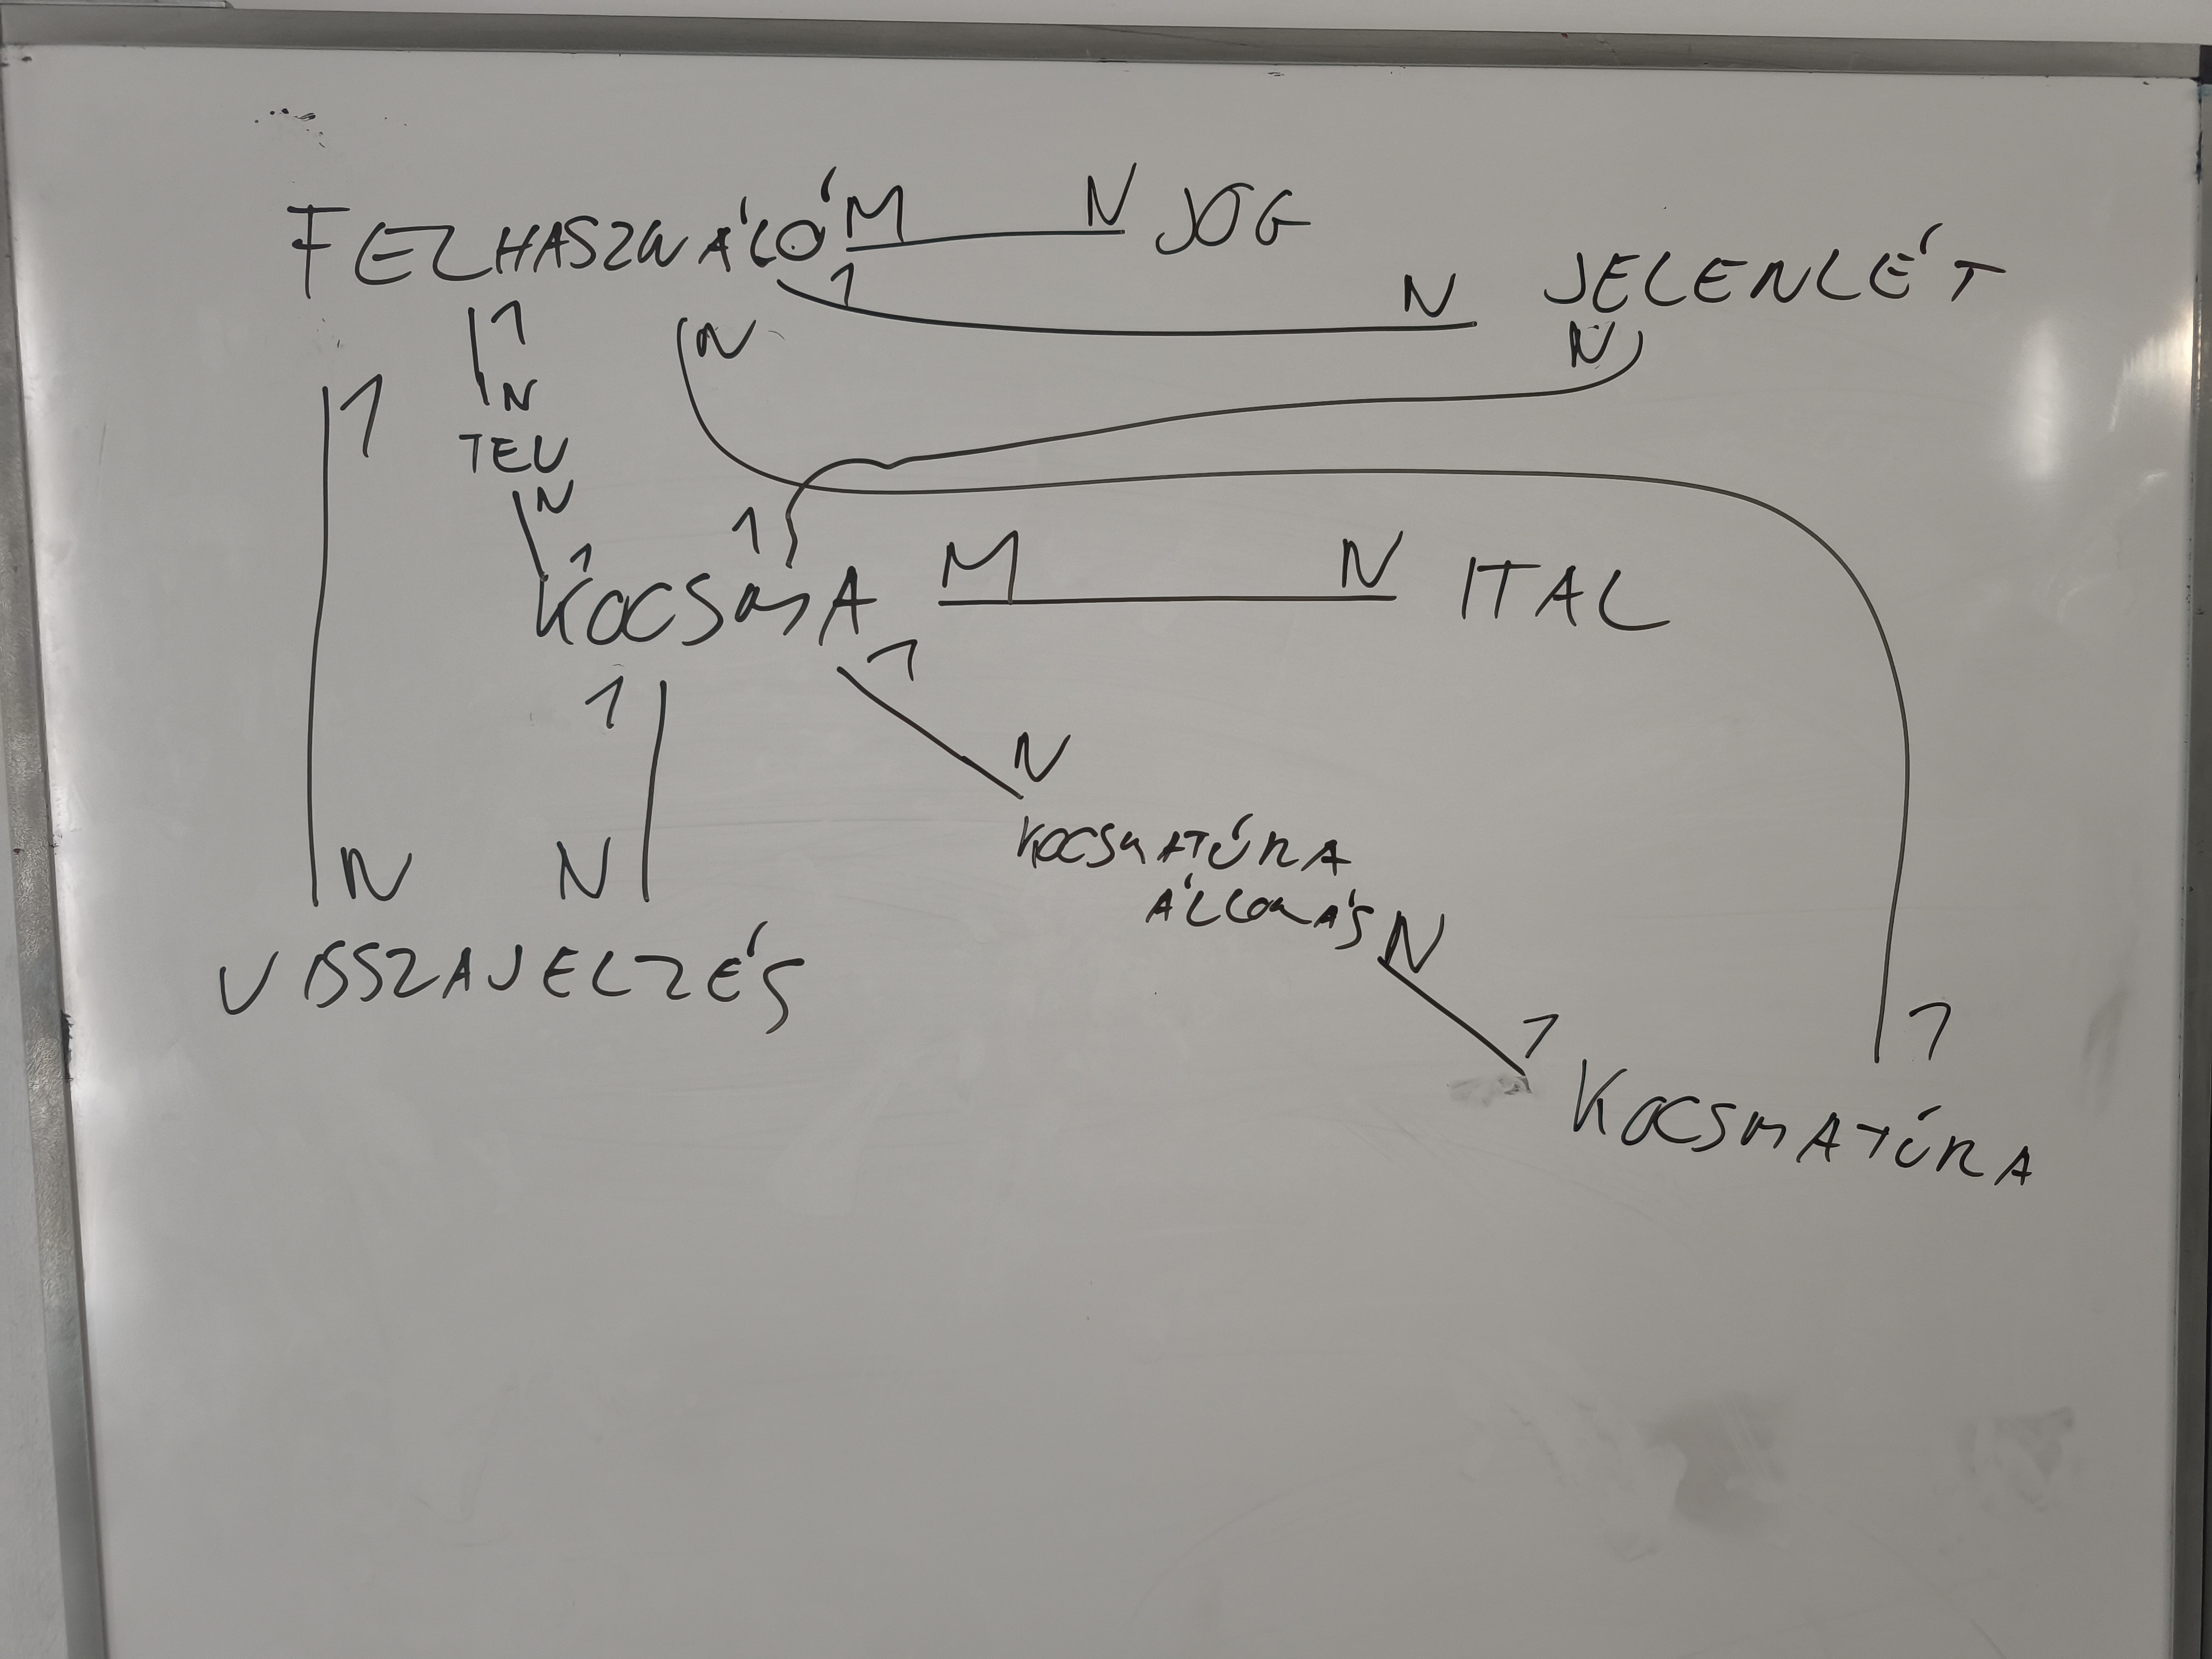 FELHASZNÁLÓ M N JOG
1 N JELENLÉT
1 N N
1 N
TEV
N
1 1
KOCSMA M N ITAL
1
1 N
N N KOCSMATÚRA
ÁLLOMÁS N
VISSZAJELZÉS
1 1
KOCSMATÚRA